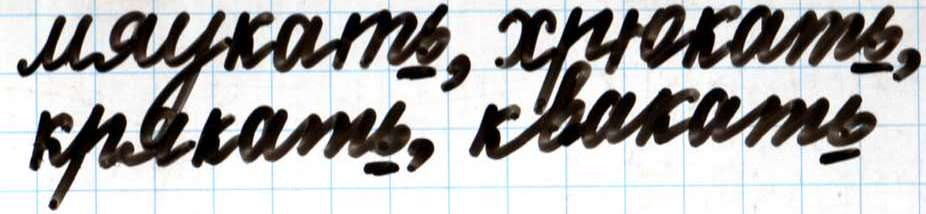 мяукать, хрюкать,
крякать, квакать